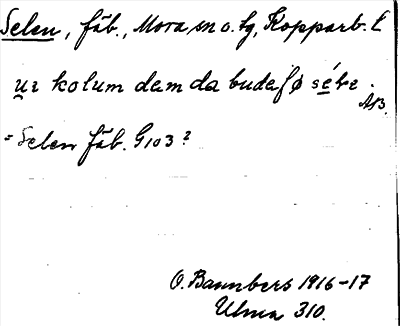 Selen, fäb., Mora sn o. tg, Kopparb. l
ur kolum dam da budafø séln.
AB.
= Selen fäb. G103?
O. Bannbers 1916-17
Ulma 310.